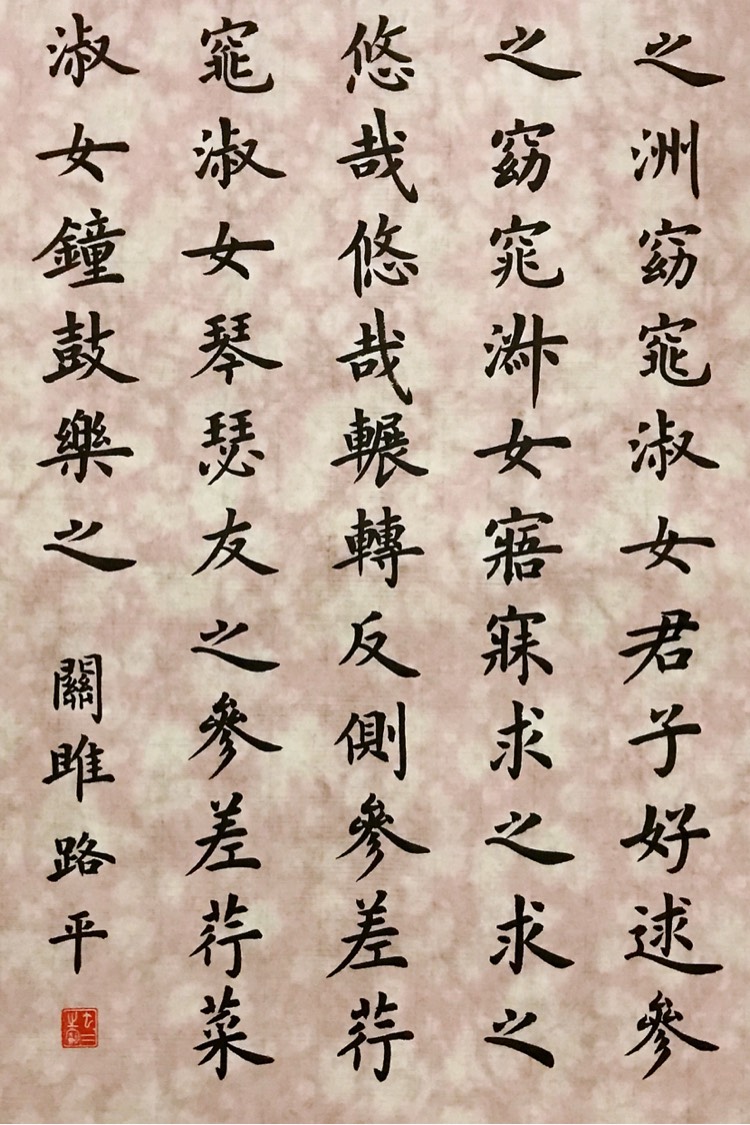 之洲窈窕淑女君子好逑參
之窈窕淑女寤寐求之求之
悠哉悠哉輾轉反側參差荇
窕淑女琴瑟友之參差荇菜
淑女鐘鼓樂之 關雎路平